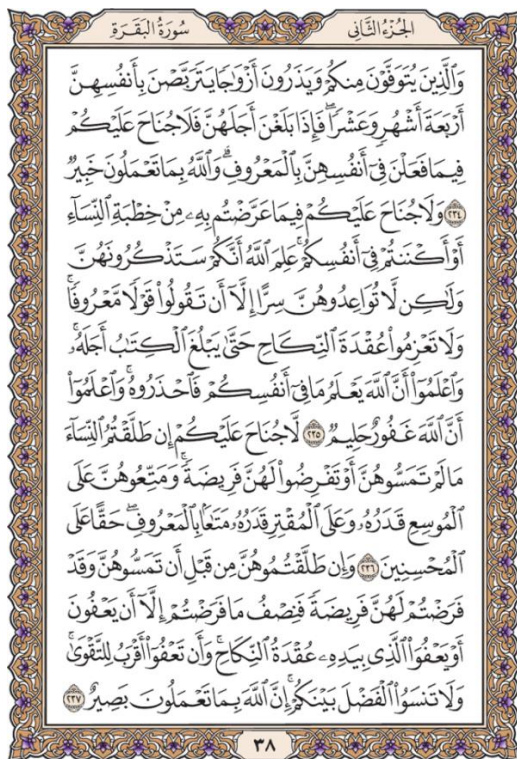 سُورَةُ البَقَرَةِ الجُزْءُ الثَّانِي
وَٱلَّذِينَ يُتَوَفَّوْنَ مِنكُمْ وَيَذَرُونَ أَزْوَٰجًا يَتَرَبَّصْنَ بِأَنفُسِهِنَّ
أَرْبَعَةَ أَشْهُرٍ وَعَشْرًا ۖ فَإِذَا بَلَغْنَ أَجَلَهُنَّ فَلَا جُنَاحَ عَلَيْكُمْ
فِيمَا فَعَلْنَ فِىٓ أَنفُسِهِنَّ بِٱلْمَعْرُوفِ ۗ وَٱللَّهُ بِمَا تَعْمَلُونَ خَبِيرٌ
٢٣٤ وَلَا جُنَاحَ عَلَيْكُمْ فِيمَا عَرَّضْتُم بِهِۦ مِنْ خِطْبَةِ ٱلنِّسَآءِ
أَوْ أَكْنَنتُمْ فِىٓ أَنفُسِكُمْ ۚ عَلِمَ ٱللَّهُ أَنَّكُمْ سَتَذْكُرُونَهُنَّ
وَلَٰكِن لَّا تُوَاعِدُوهُنَّ سِرًّا إِلَّآ أَن تَقُولُوا۟ قَوْلًا مَّعْرُوفًا ۚ
وَلَا تَعْزِمُوا۟ عُقْدَةَ ٱلنِّكَاحِ حَتَّىٰ يَبْلُغَ ٱلْكِتَٰبُ أَجَلَهُۥ ۚ
وَٱعْلَمُوٓا۟ أَنَّ ٱللَّهَ يَعْلَمُ مَا فِىٓ أَنفُسِكُمْ فَٱحْذَرُوهُ ۚ وَٱعْلَمُوٓا۟
أَنَّ ٱللَّهَ غَفُورٌ حَلِيمٌ ٢٣٥ لَّا جُنَاحَ عَلَيْكُمْ إِن طَلَّقْتُمُ ٱلنِّسَآءَ
مَا لَمْ تَمَسُّوهُنَّ أَوْ تَفْرِضُوا۟ لَهُنَّ فَرِيضَةً ۚ وَمَتِّعُوهُنَّ عَلَى
ٱلْمُوسِعِ قَدَرُهُۥ وَعَلَى ٱلْمُقْتِرِ قَدَرُهُۥ مَتَٰعًۢا بِٱلْمَعْرُوفِ ۖ حَقًّا عَلَى
ٱلْمُحْسِنِينَ ٢٣٦ وَإِن طَلَّقْتُمُوهُنَّ مِن قَبْلِ أَن تَمَسُّوهُنَّ وَقَدْ
فَرَضْتُمْ لَهُنَّ فَرِيضَةً فَنِصْفُ مَا فَرَضْتُمْ إِلَّآ أَن يَعْفُونَ
أَوْ يَعْفُوَا۟ ٱلَّذِى بِيَدِهِۦ عُقْدَةُ ٱلنِّكَاحِ ۚ وَأَن تَعْفُوٓا۟ أَقْرَبُ لِلتَّقْوَىٰ ۚ
وَلَا تَنسَوُا۟ ٱلْفَضْلَ بَيْنَكُمْ ۚ إِنَّ ٱللَّهَ بِمَا تَعْمَلُونَ بَصِيرٌ ٢٣٧
٣٨